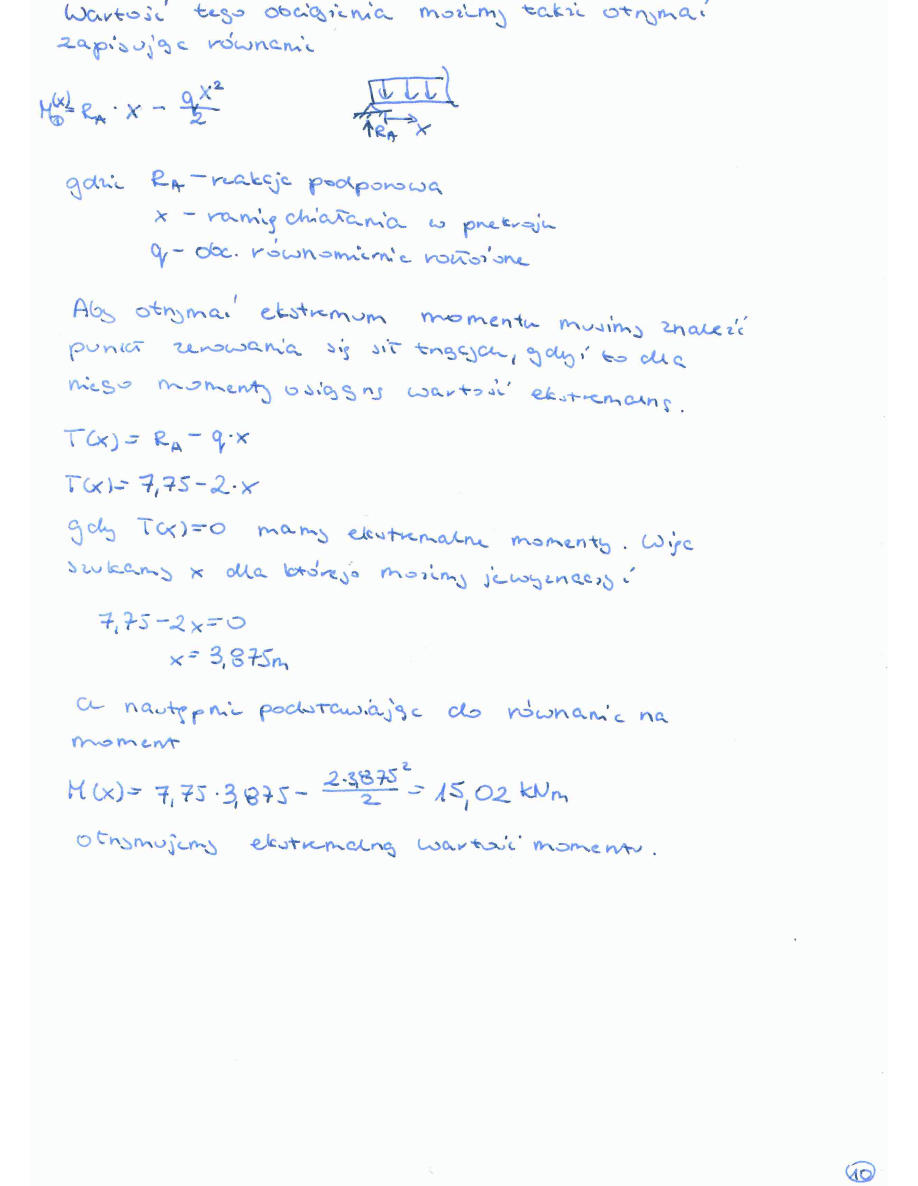 Wartość tego obciążenia możemy także otrzymać
zapisując równanie
M①(x) = R_A · x − qx²/2
R_A x
gdzie R_A – reakcja podporowa
x – ramię działania w przekroju
q – obc. równomiernie rozłożone
Aby otrzymać ekstremum momentu musimy znaleźć
punkt zerowania się sił tnących, gdyż to dla
niego momenty osiągną wartość ekstremalną.
T(x) = R_A − q·x
T(x) = 7,75 − 2·x
gdy T(x)=0 mamy ekstremalne momenty. Więc
szukamy x dla którego możemy je wyznaczyć
7,75 − 2x = 0
x = 3,875m
a następnie podstawiając do równanie na
moment
M(x) = 7,75 · 3,875 − 2·3,875²/2 = 15,02 kNm
otrzymujemy ekstremalną wartość momentu.
10